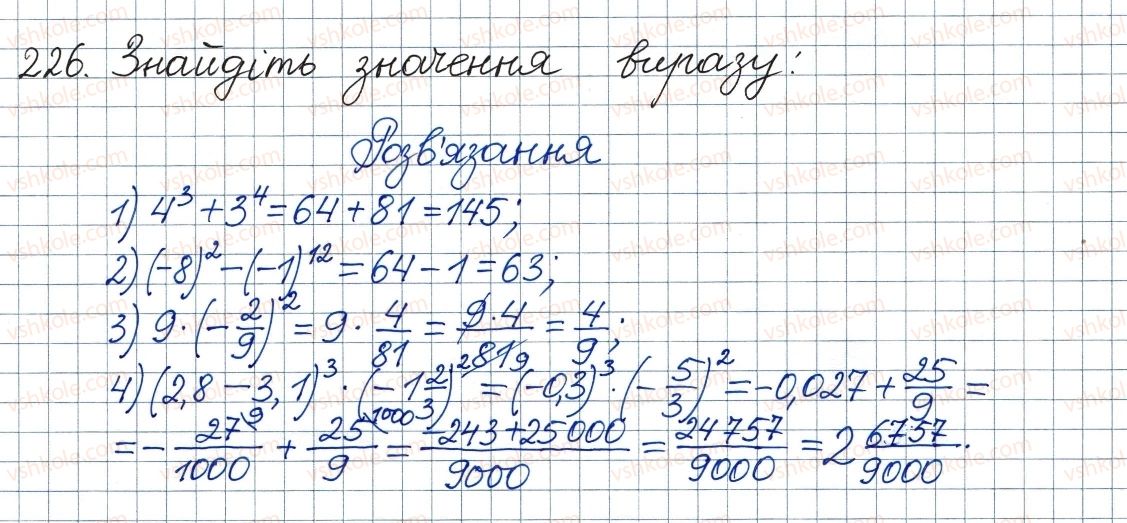 226. Знайдіть значення виразу:
Розв'язання
1) 4³ + 3⁴ = 64 + 81 = 145;
2) (-8)² - (-1)¹² = 64 - 1 = 63;
3) 9 · (- 2/9)² = 9 · 4/81 = 9·4/81 9 = 4/9;
4) (2,8 - 3,1)³ · (-1 2/3)² = (-0,3)³ · (- 5/3)² = -0,027 + 25/9 =
= - 27\9/1000 + 25\1000/9 = -243+25000/9000 = 24757/9000 = 2 6757/9000.